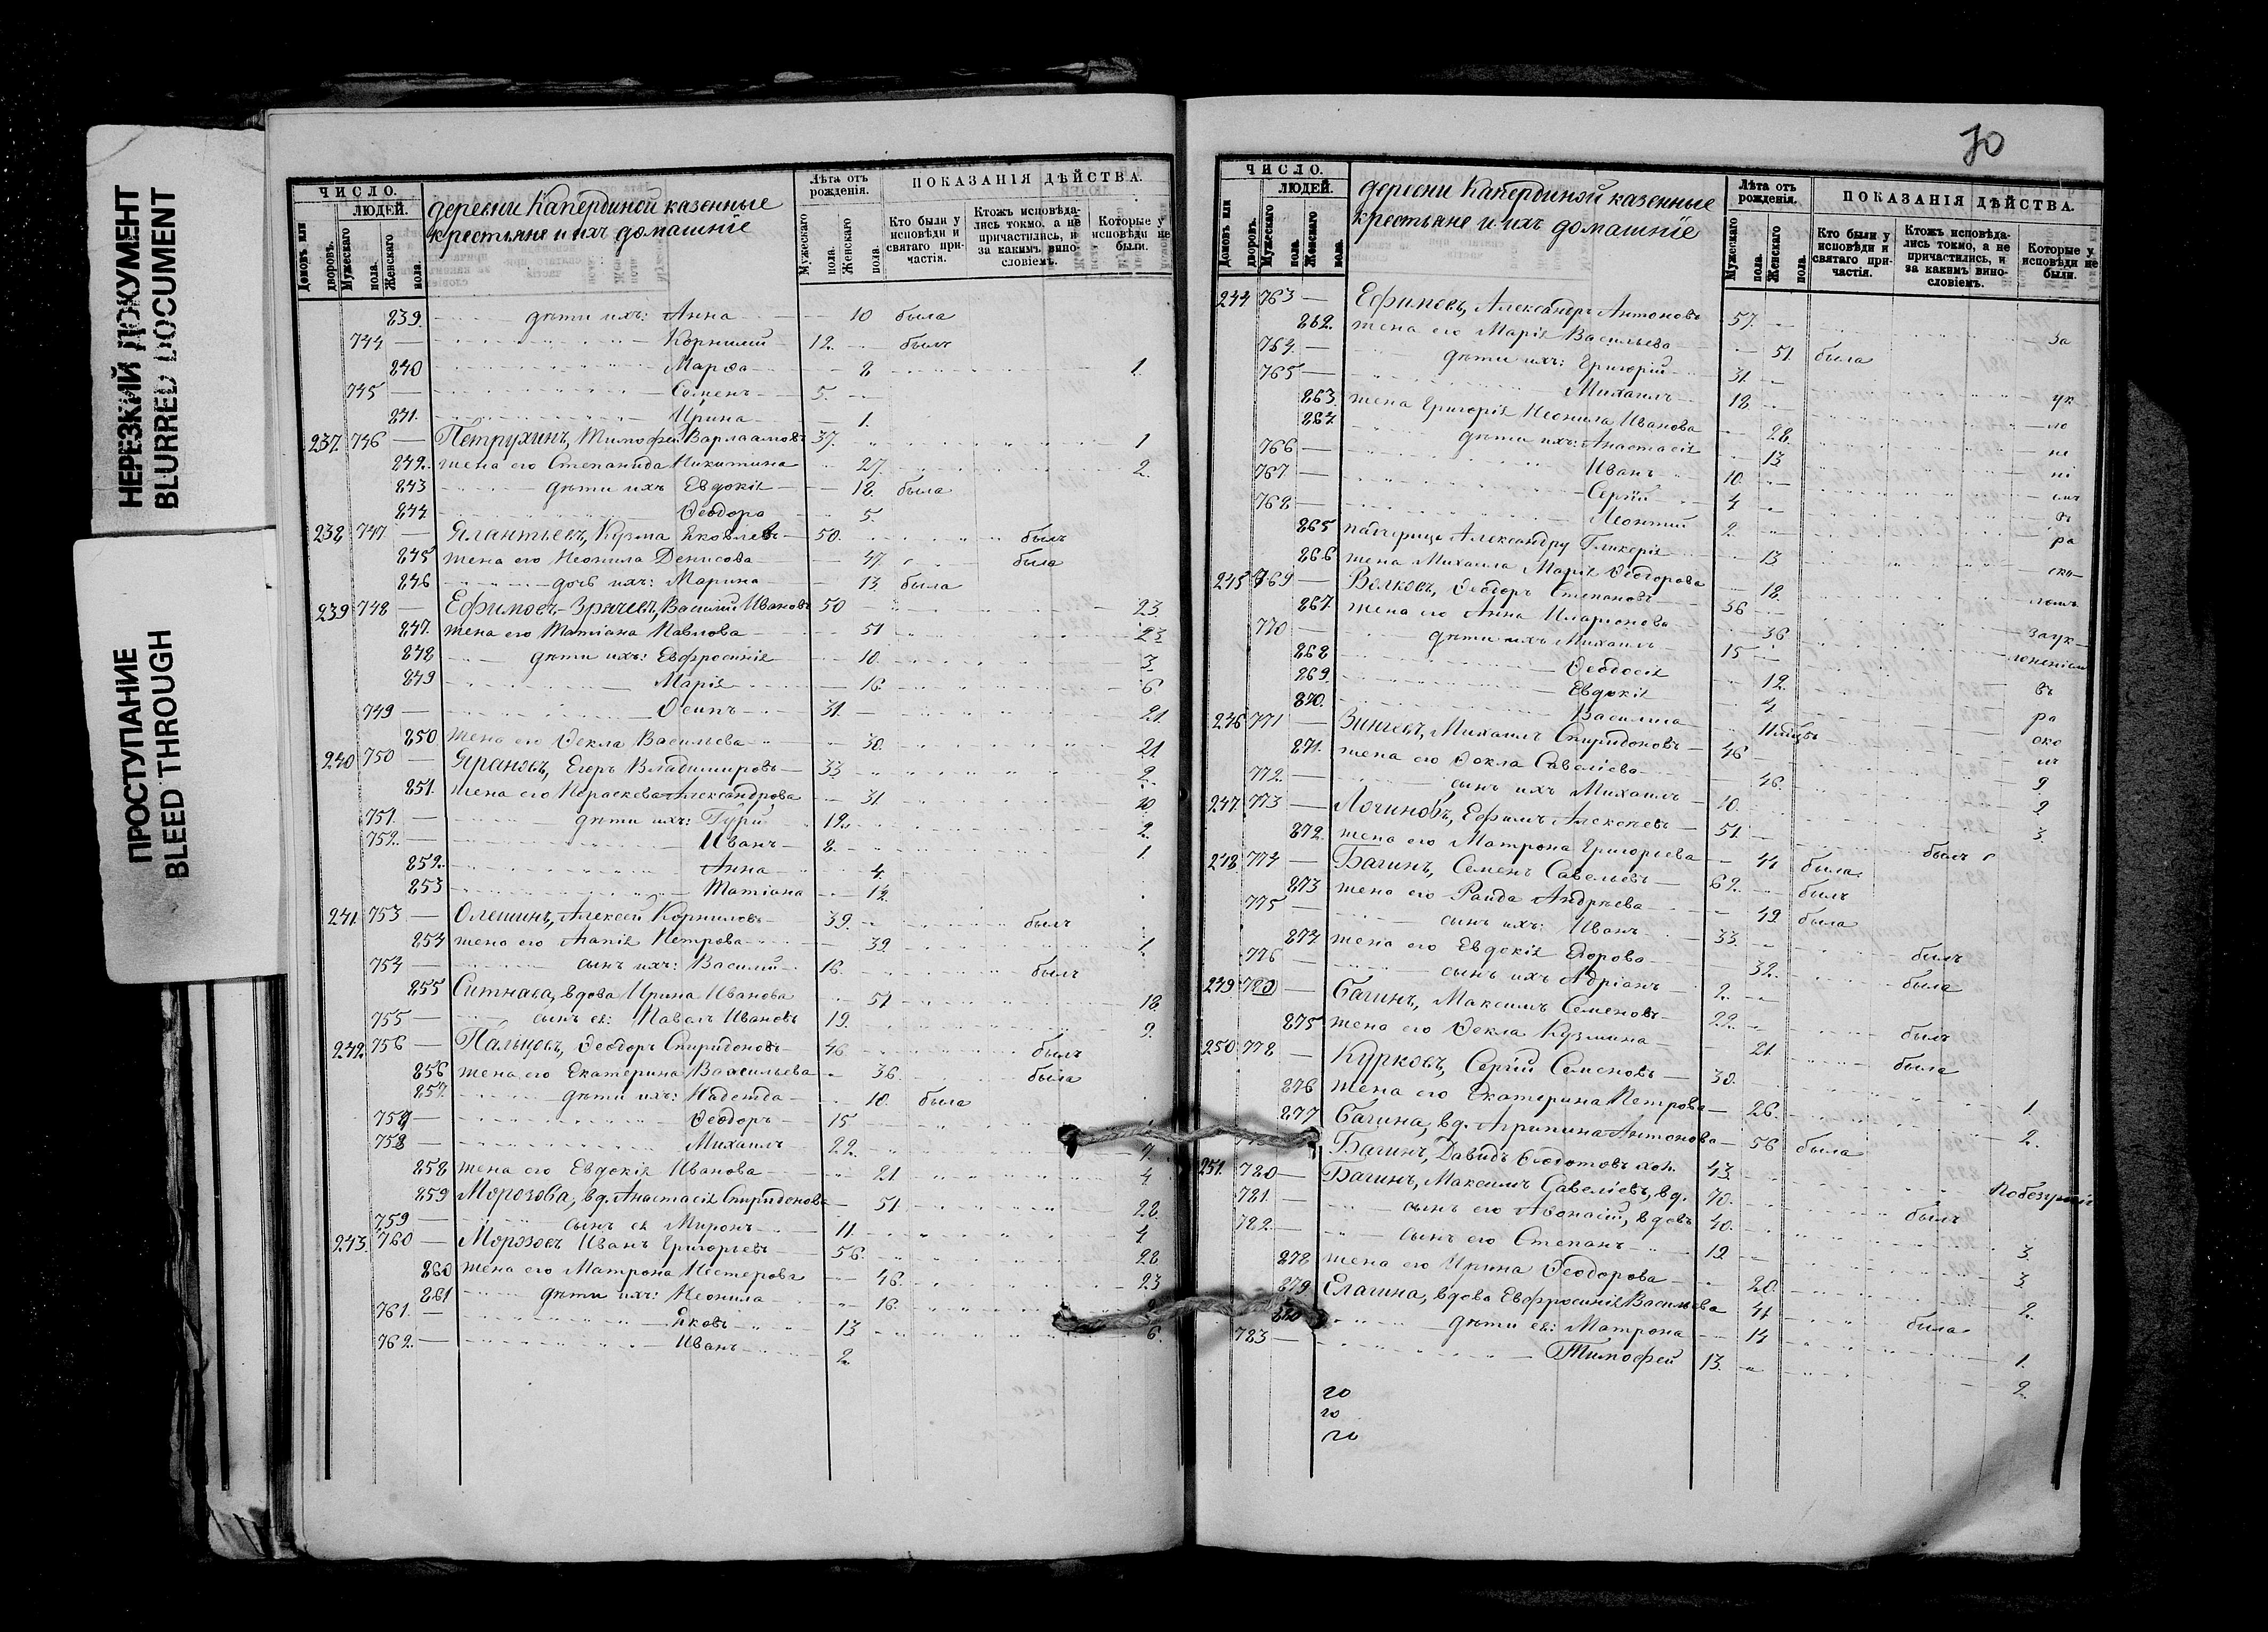 НЕРЕЗКИЙ ДОКУМЕНТ
BLURRED DOCUMENT
ПРОСТУПАНИЕ
BLEED THROUGH
ЧИСЛО.
ЛЮДЕЙ.
Домовъ или дворовъ.
Мужескаго пола.
Женскаго пола.
деревни Капердиной казенные
крестьяне и ихъ домашніе
Лѣта отъ рожденія.
Мужескаго пола.
Женскаго пола.
ПОКАЗАНІЯ ДѢЙСТВА.
Кто были у исповѣди и святаго причастія.
Ктожъ исповѣдались токмо, а не причастились, и за какимъ винословіемъ.
Которые у исповѣди не были.
839. дѣти ихъ: Анна 10 была
744 Корнилий 12. былъ
840 Марѳа 8 1.
745 Семенъ 5.
841. Ирина 1.
237. 746 Петрухинъ, Тимофей Варлаамовъ 37. 1
842. жена его Степанида Никитина 27. 2.
843 дѣти ихъ Евдокія 12. была
844. Ѳеодора 5.
238 747 Ялантьевъ, Кузма Яковлевъ 50. былъ
845 жена его Неонила Денисова 47. была
846 дочь ихъ: Марина 13 была
239 748 Ефимовъ-Зрячевъ, Василий Ивановъ 50 23.
847. жена его Татіана Павлова 51 23
848 дѣти ихъ: Евфросинія 10. 3.
849 Марія 16. 6.
749 Осипъ 31. 21.
850 жена его Ѳекла Васильева 30. 21
240 750 Ярановъ, Егоръ Владимировъ 33 2.
851. жена его Параскева Александрова 31. 10.
751. дѣти ихъ: Гурій 12. 2.
752. Иванъ 8. 1.
852. Анна 4.
853 Татіана 12.
241. 753 Олешинъ, Алексей Корниловъ 39. былъ
854 жена его Агапія Петрова 39 1.
754 сынъ ихъ: Василий 16. былъ
855 Ситнова, вдова Ирина Иванова 51 18.
755 сынъ ея: Павелъ Ивановъ 19. 9.
242. 756 Пальцовъ, Ѳеодоръ Спиридоновъ 46 былъ
856 жена его Екатерина Васильева 36. была
857. дѣти ихъ: Надежда 10. была
757 Ѳеодоръ 15
758 Михаилъ 22.
858 жена его Евдокія Иванова 21 4
859 Морозова, вд. Анастасія Спиридонова 51 28.
759 сынъ ея Миронъ 11. 4
243. 760 Морозовъ Иванъ Григорьевъ 56. 28
860 жена его Матрона Нестерова 46. 23
861 дѣти ихъ: Неонила 16.
761. Яковъ 13 6.
762. Иванъ 2.
70
ЧИСЛО.
ЛЮДЕЙ.
Домовъ или дворовъ.
Мужескаго пола.
Женскаго пола.
деревни Капердиной казенные
крестьяне и ихъ домашніе
Лѣта отъ рожденія.
Мужескаго пола.
Женскаго пола.
ПОКАЗАНІЯ ДѢЙСТВА.
Кто были у исповѣди и святаго причастія.
Ктожъ исповѣдались токмо, а не причастились, и за какимъ винословіемъ.
Которые у исповѣди не были.
244 763 Ефимовъ, Александръ Антоновъ 57. За
862. жена его Марія Васильева 51 была
764. дѣти ихъ: Григорій 31. ук
765 Михаилъ 18. ло
863. жена Григорія Неонила Иванова 28. не
864. дѣти ихъ: Анастасія 13 ні
766 Иванъ 10. емъ
767. Сергій 4 въ
768 Леонтий 2. ра
865 падчерица Александру Гликерія 13 ско
866 жена Михаила Марія Ѳеодорова 18. ломъ
245 769 Волковъ, Ѳеодоръ Степановъ 36 Заук
867. жена его Анна Иларионова 36. лоненіемъ
770 дѣти ихъ Михаилъ 15 въ
868 Ѳеодосія 12. ра
869. Евдокія 4. ско
870. Василиса лъ
246 771 Зинчевъ, Михаилъ Спиридоновъ 46 9
871. жена его Ѳекла Савеліева 46. 2
772. сынъ ихъ Михаилъ 10. 3
247. 773 Логиновъ, Ефимъ Алексѣевъ 51. былъ
872. жена его Матрона Григорьева 44 была
248. 774 Багинъ, Семенъ Савельевъ 62. былъ
873 жена его Раида Андрѣева 49. была
775 сынъ ихъ: Иванъ 33. былъ
874 жена его Евдокія Егорова 32. была
776 сынъ ихъ Адріанъ 2.
249 Багинъ, Максимъ Семеновъ 22. былъ
875 жена его Ѳекла Кузмина 21. была
250 778 Курковъ, Сергій Семеновъ 30. 1.
876 жена его Екатерина Петрова 26. 2.
877 Багина, вд. Агрипина Антонова 56 была
Багинъ, Давидъ Ѳедотовъ хол. 43. По безумію
251. 780 Багинъ, Максимъ Савеліевъ, вд. 70. былъ
781. сынъ его Аѳонасій, вдовъ 40. 3
782. сынъ его Степанъ 19 3
878 жена его Ирина Ѳеодорова 20. 2.
879 Елагина, вдова Евфросинія Васильева 44 была
880 дѣти ея: Матрона 14 1.
783 Тимофей 13. 2.
го
го
го